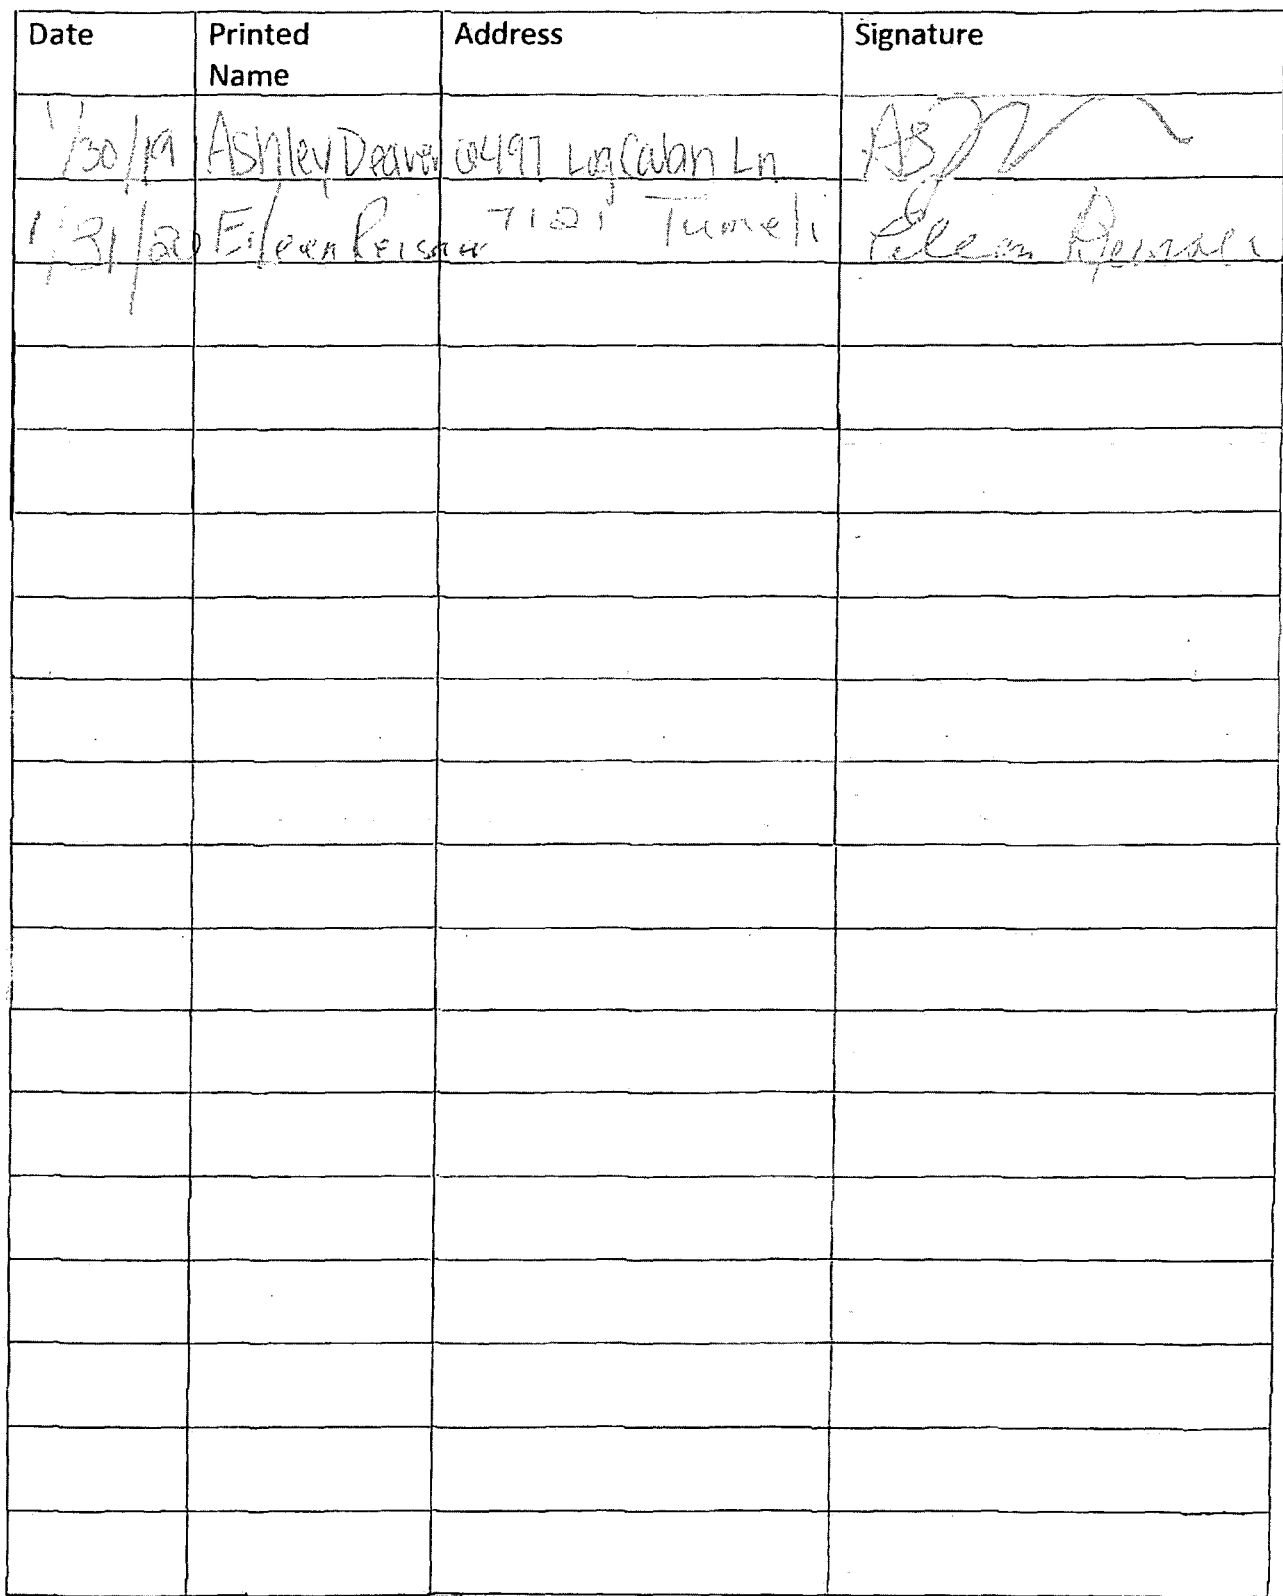 Date Printed Name Address Signature
1/30/19 Ashley Deaver 6497 Log Cabin Ln
1/31/20 Eileen Reisner 7121 Tumeli Eileen Reisner